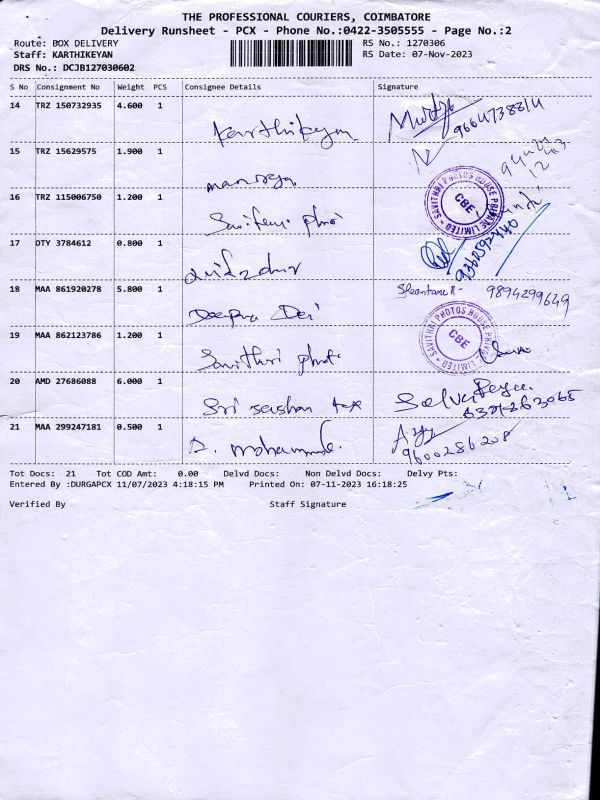 THE PROFESSIONAL COURIERS, COIMBATORE
Delivery Runsheet - PCX - Phone No.:0422-3505555 - Page No.:2
Route: BOX DELIVERY RS No.: 1270306
Staff: KARTHIKEYAN RS Date: 07-Nov-2023
DRS No.: DCJB127030602
S No Consignment No Weight PCS Consignee Details Signature
14 TRZ 150732935 4.600 1
Karthikeyan
15 TRZ 15629575 1.900 1
16 TRZ 115006750 1.200 1
SAVITHRI PHOTOS HOUSE PRIVATE LIMITED
CBE
17 DTY 3784612 0.800 1
18 MAA 861920278 5.800 1
9894299649
Deepa Devi
19 MAA 862123786 1.200 1
SAVITHRI PHOTOS HOUSE PRIVATE LIMITED
CBE
Savithri photo
20 AMD 27686088 6.000 1
Sri sashan tex
21 MAA 299247181 0.500 1
9600286208
Tot Docs: 21 Tot COD Amt: 0.00 Delvd Docs: Non Delvd Docs: Delvy Pts:
Entered By :DURGAPCX 11/07/2023 4:18:15 PM Printed On: 07-11-2023 16:18:25
Verified By Staff Signature